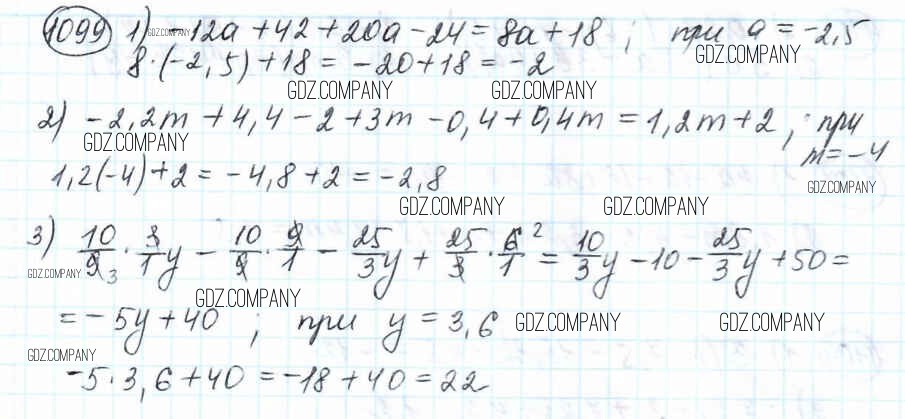 1099 1) -12a + 42 + 20a - 24 = 8a + 18 ; при a = -2,5
GDZ.COMPANY GDZ.COMPANY
8·(-2,5) + 18 = -20 + 18 = -2
GDZ.COMPANY GDZ.COMPANY
2) -2,2m + 4,4 - 2 + 3m - 0,4 + 0,4m = 1,2m + 2 , при
GDZ.COMPANY
m = -4
1,2(-4) + 2 = -4,8 + 2 = -2,8
GDZ.COMPANY
GDZ.COMPANY GDZ.COMPANY
3) 10/9 3 · 3/1 y - 10/9 · 9/1 - 25/3 y + 25/3 · 6/1 2 = 10/3 y - 10 - 25/3 y + 50 =
GDZ.COMPANY
GDZ.COMPANY
= -5y + 40 ; при y = 3,6
GDZ.COMPANY GDZ.COMPANY
GDZ.COMPANY
-5·3,6 + 40 = -18 + 40 = 22